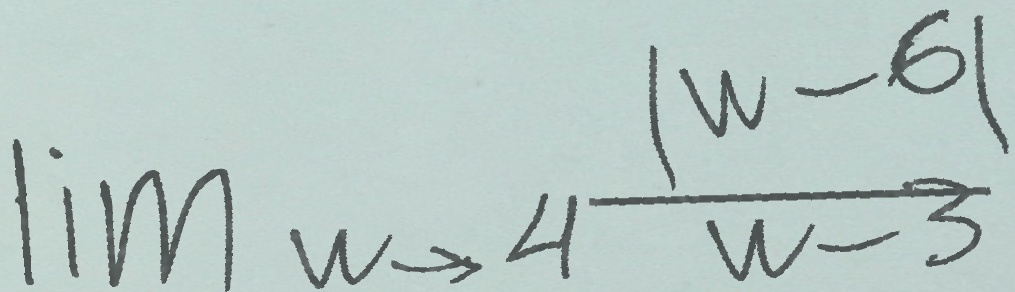 \lim_{w \to 4} \frac{|w-6|}{w-3}